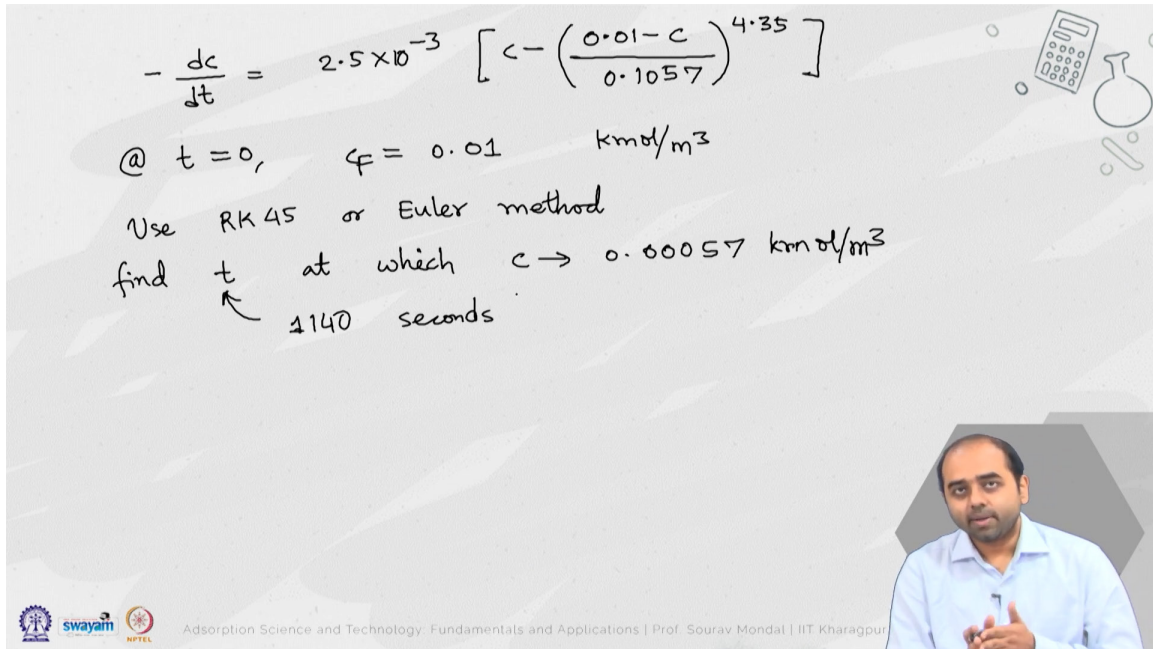 - dc/dt = 2.5 × 10^-3 [c - ((0.01 - c)/0.1057)^4.35]
@ t = 0, c_F = 0.01 kmol/m^3
Use RK45 or Euler method
find t at which c → 0.00057 kmol/m^3
1140 seconds
swayam
NPTEL
Adsorption Science and Technology: Fundamentals and Applications | Prof. Sourav Mondal | IIT Kharagpur